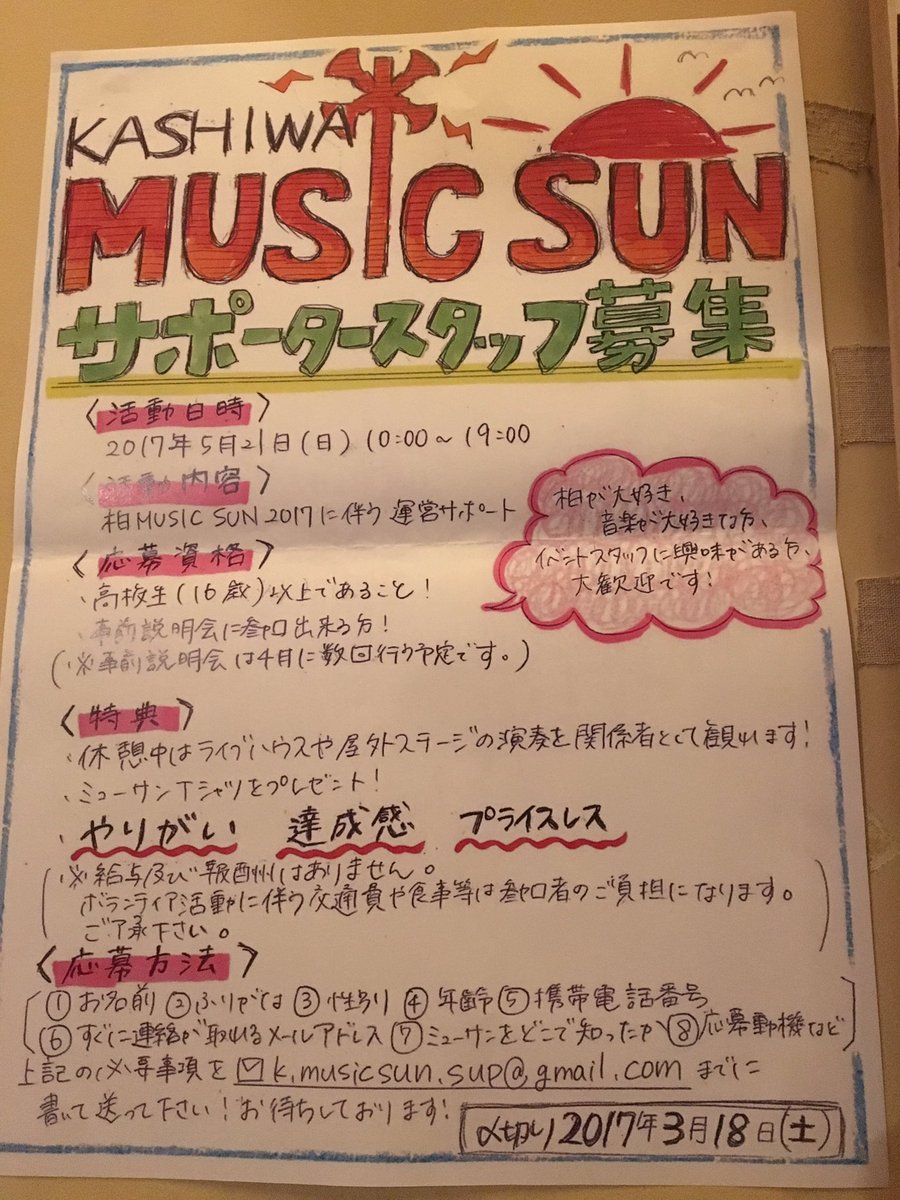 KASHIWA
MUSIC SUN
サポータースタッフ募集
〈活動日時〉
2017年5月21日(日) 10:00〜19:00
〈活動内容〉
柏MUSIC SUN 2017に伴う運営サポート
柏が大好き、
音楽が大好きな方、
イベントスタッフに興味がある方、
大歓迎です!
〈応募資格〉
、高校生(16歳)以上であること!
、事前説明会に参加出来る方!
(※事前説明会は4月に数回行う予定です。)
〈特典〉
、休憩中はライブハウスや屋外ステージの演奏を関係者として観れます!
、ミューサンTシャツをプレゼント!
、やりがい 達成感 プライスレス
(※給与及び報酬州はありません。
ボランティア活動に伴う交通費や食事等は参加者のご負担になります。
ご了承下さい。)
〈応募方法〉
①お名前 ②ふりがな ③性別 ④年齢 ⑤携帯電話番号
⑥すぐに連絡が取れるメールアドレス ⑦ミューサンをどこで知ったか ⑧応募動機など
上記の必要事項を✉k.musicsun.sup@gmail.comまでに
書いて送って下さい!お待ちしております!
〆切り2017年3月18日(土)